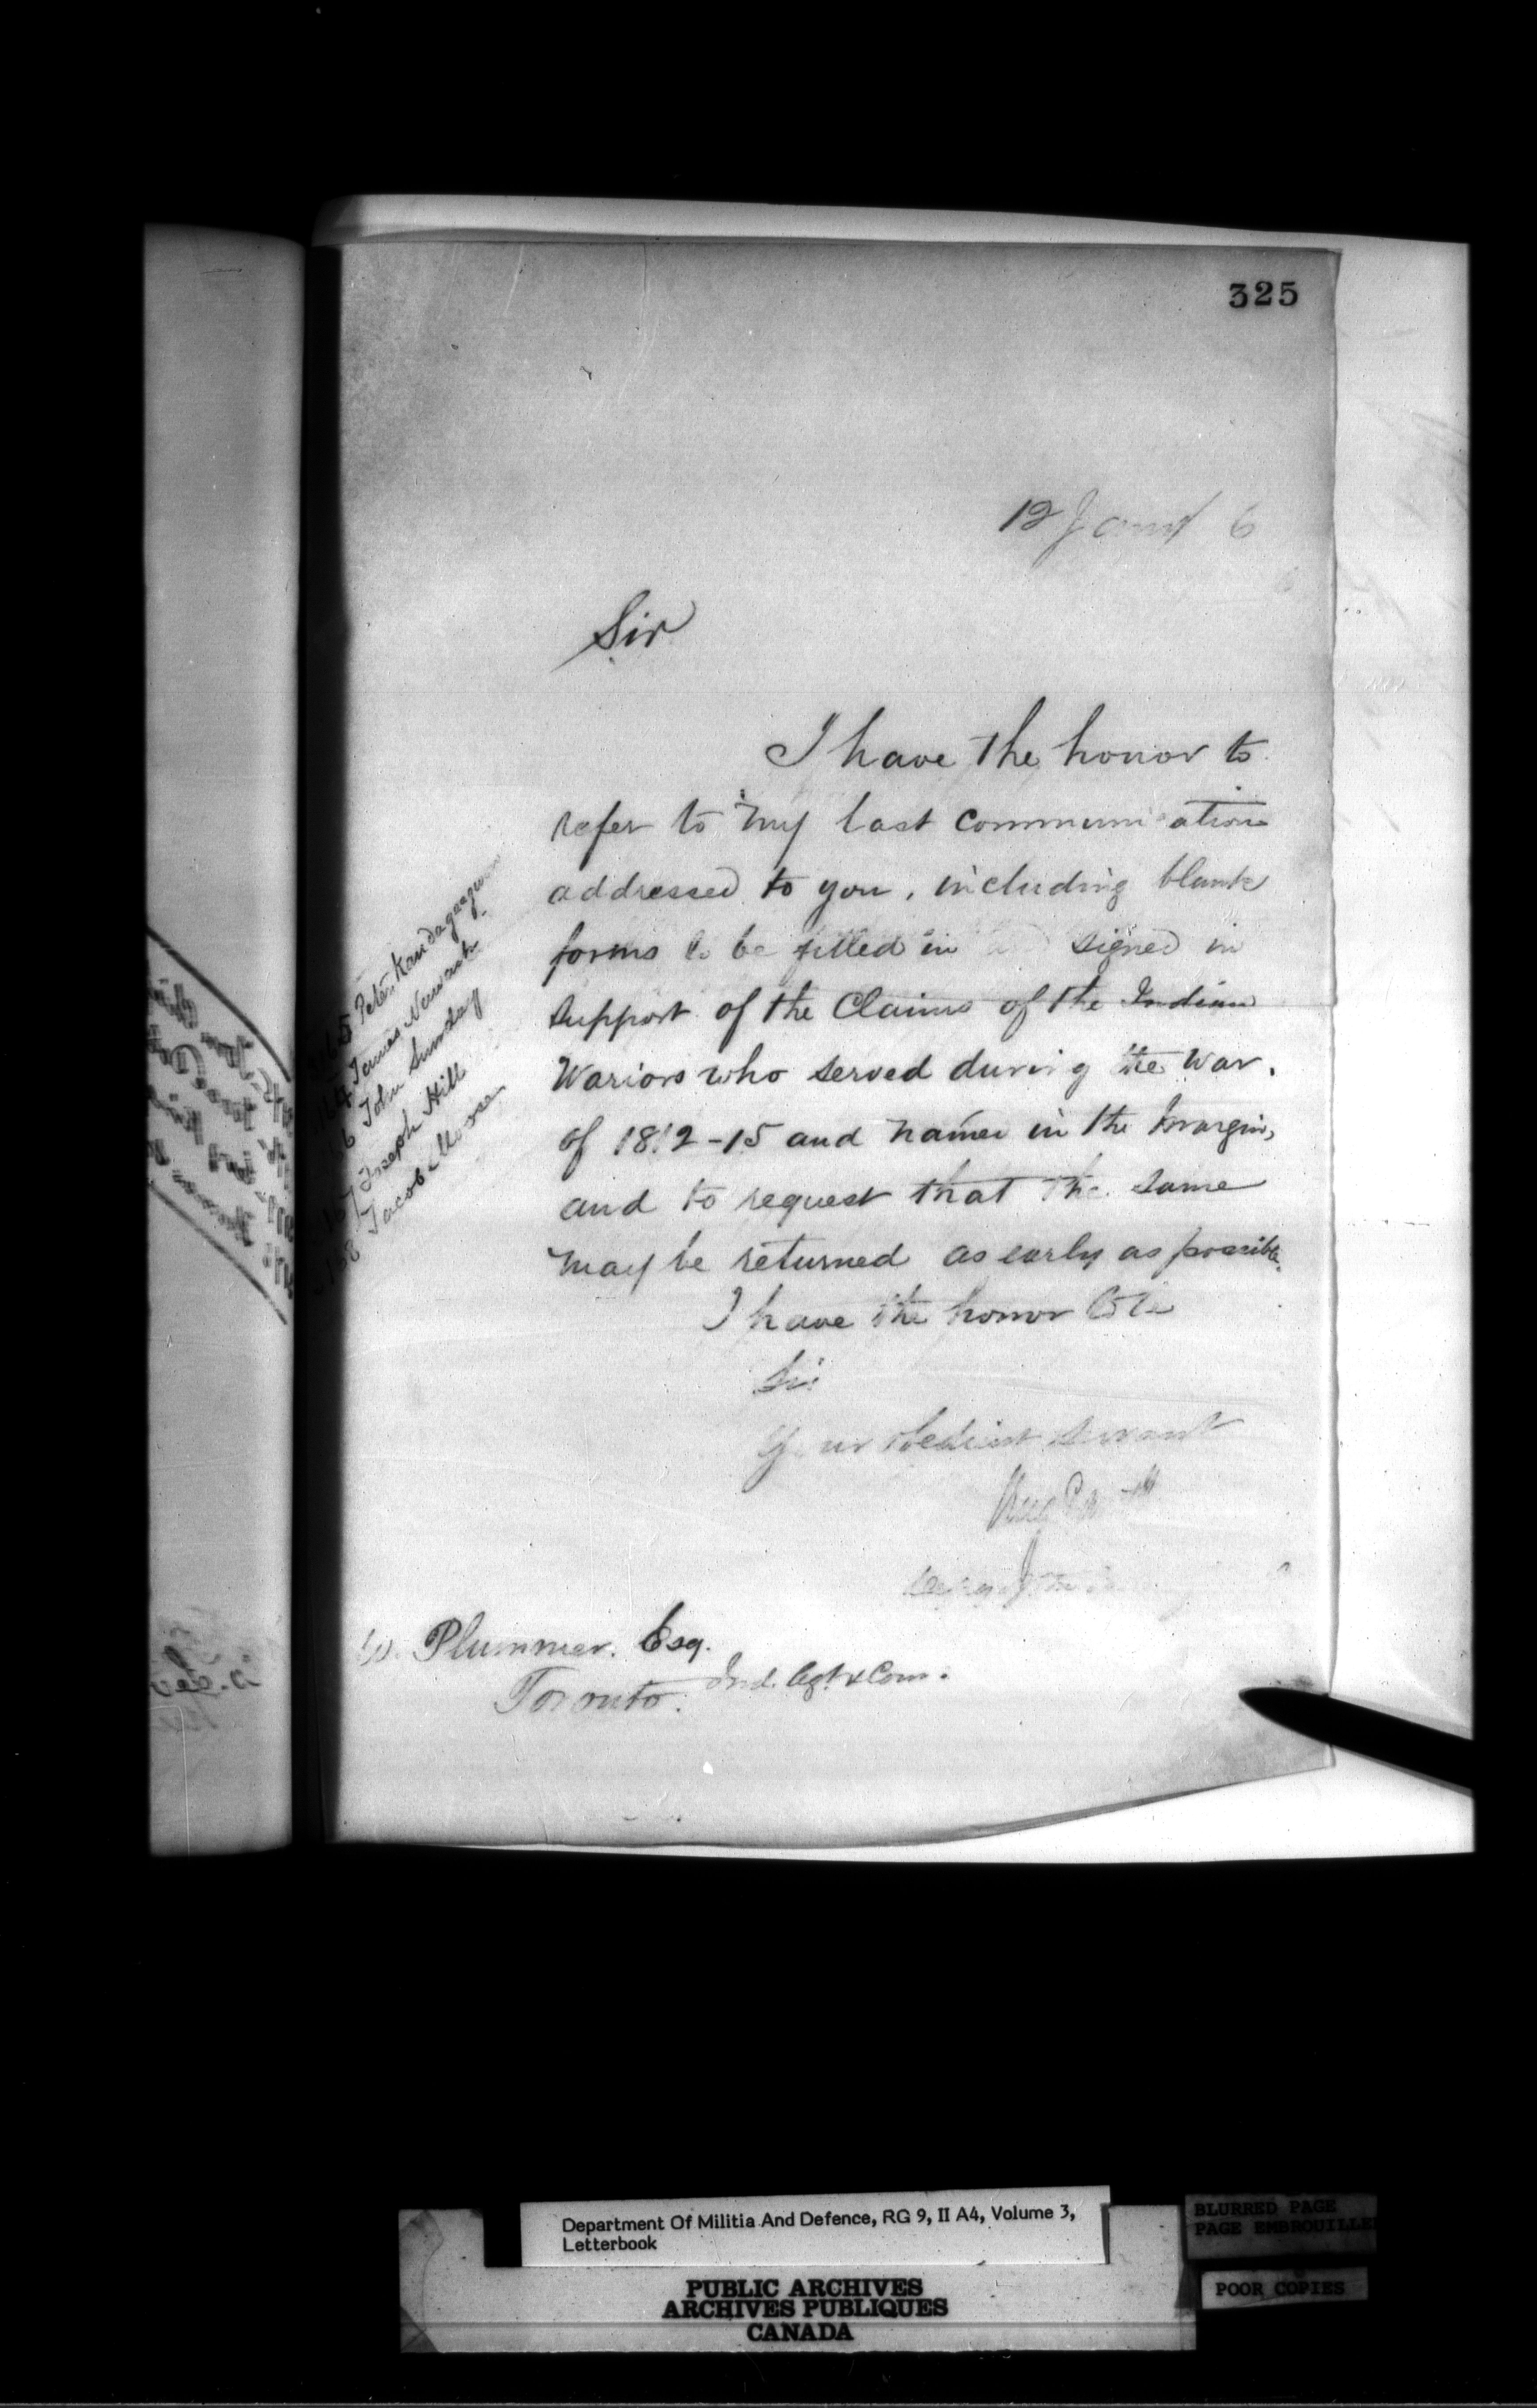 325
12 6
Sir
I have the honor to
refer to my last communication
addressed to you, including blank
forms to be filled in signed in
support of the Claims of the Indian
Wariors who served during the War,
of 1812-15 and named in the margin,
and to request that the same
may be returned as early as possible.
I have the honor to be
Sir
Your obedient servant
Peter
James Newark
John Sunday
167 Joseph Hill
168 Jacob Moose
W. Plummer. Esq.
Ind. Agt. & Com.
Toronto.
Department Of Militia And Defence, RG 9, II A4, Volume 3,
Letterbook
PUBLIC ARCHIVES
ARCHIVES PUBLIQUES
CANADA
BLURRED PAGE
PAGE EMBROUILLE
POOR COPIES